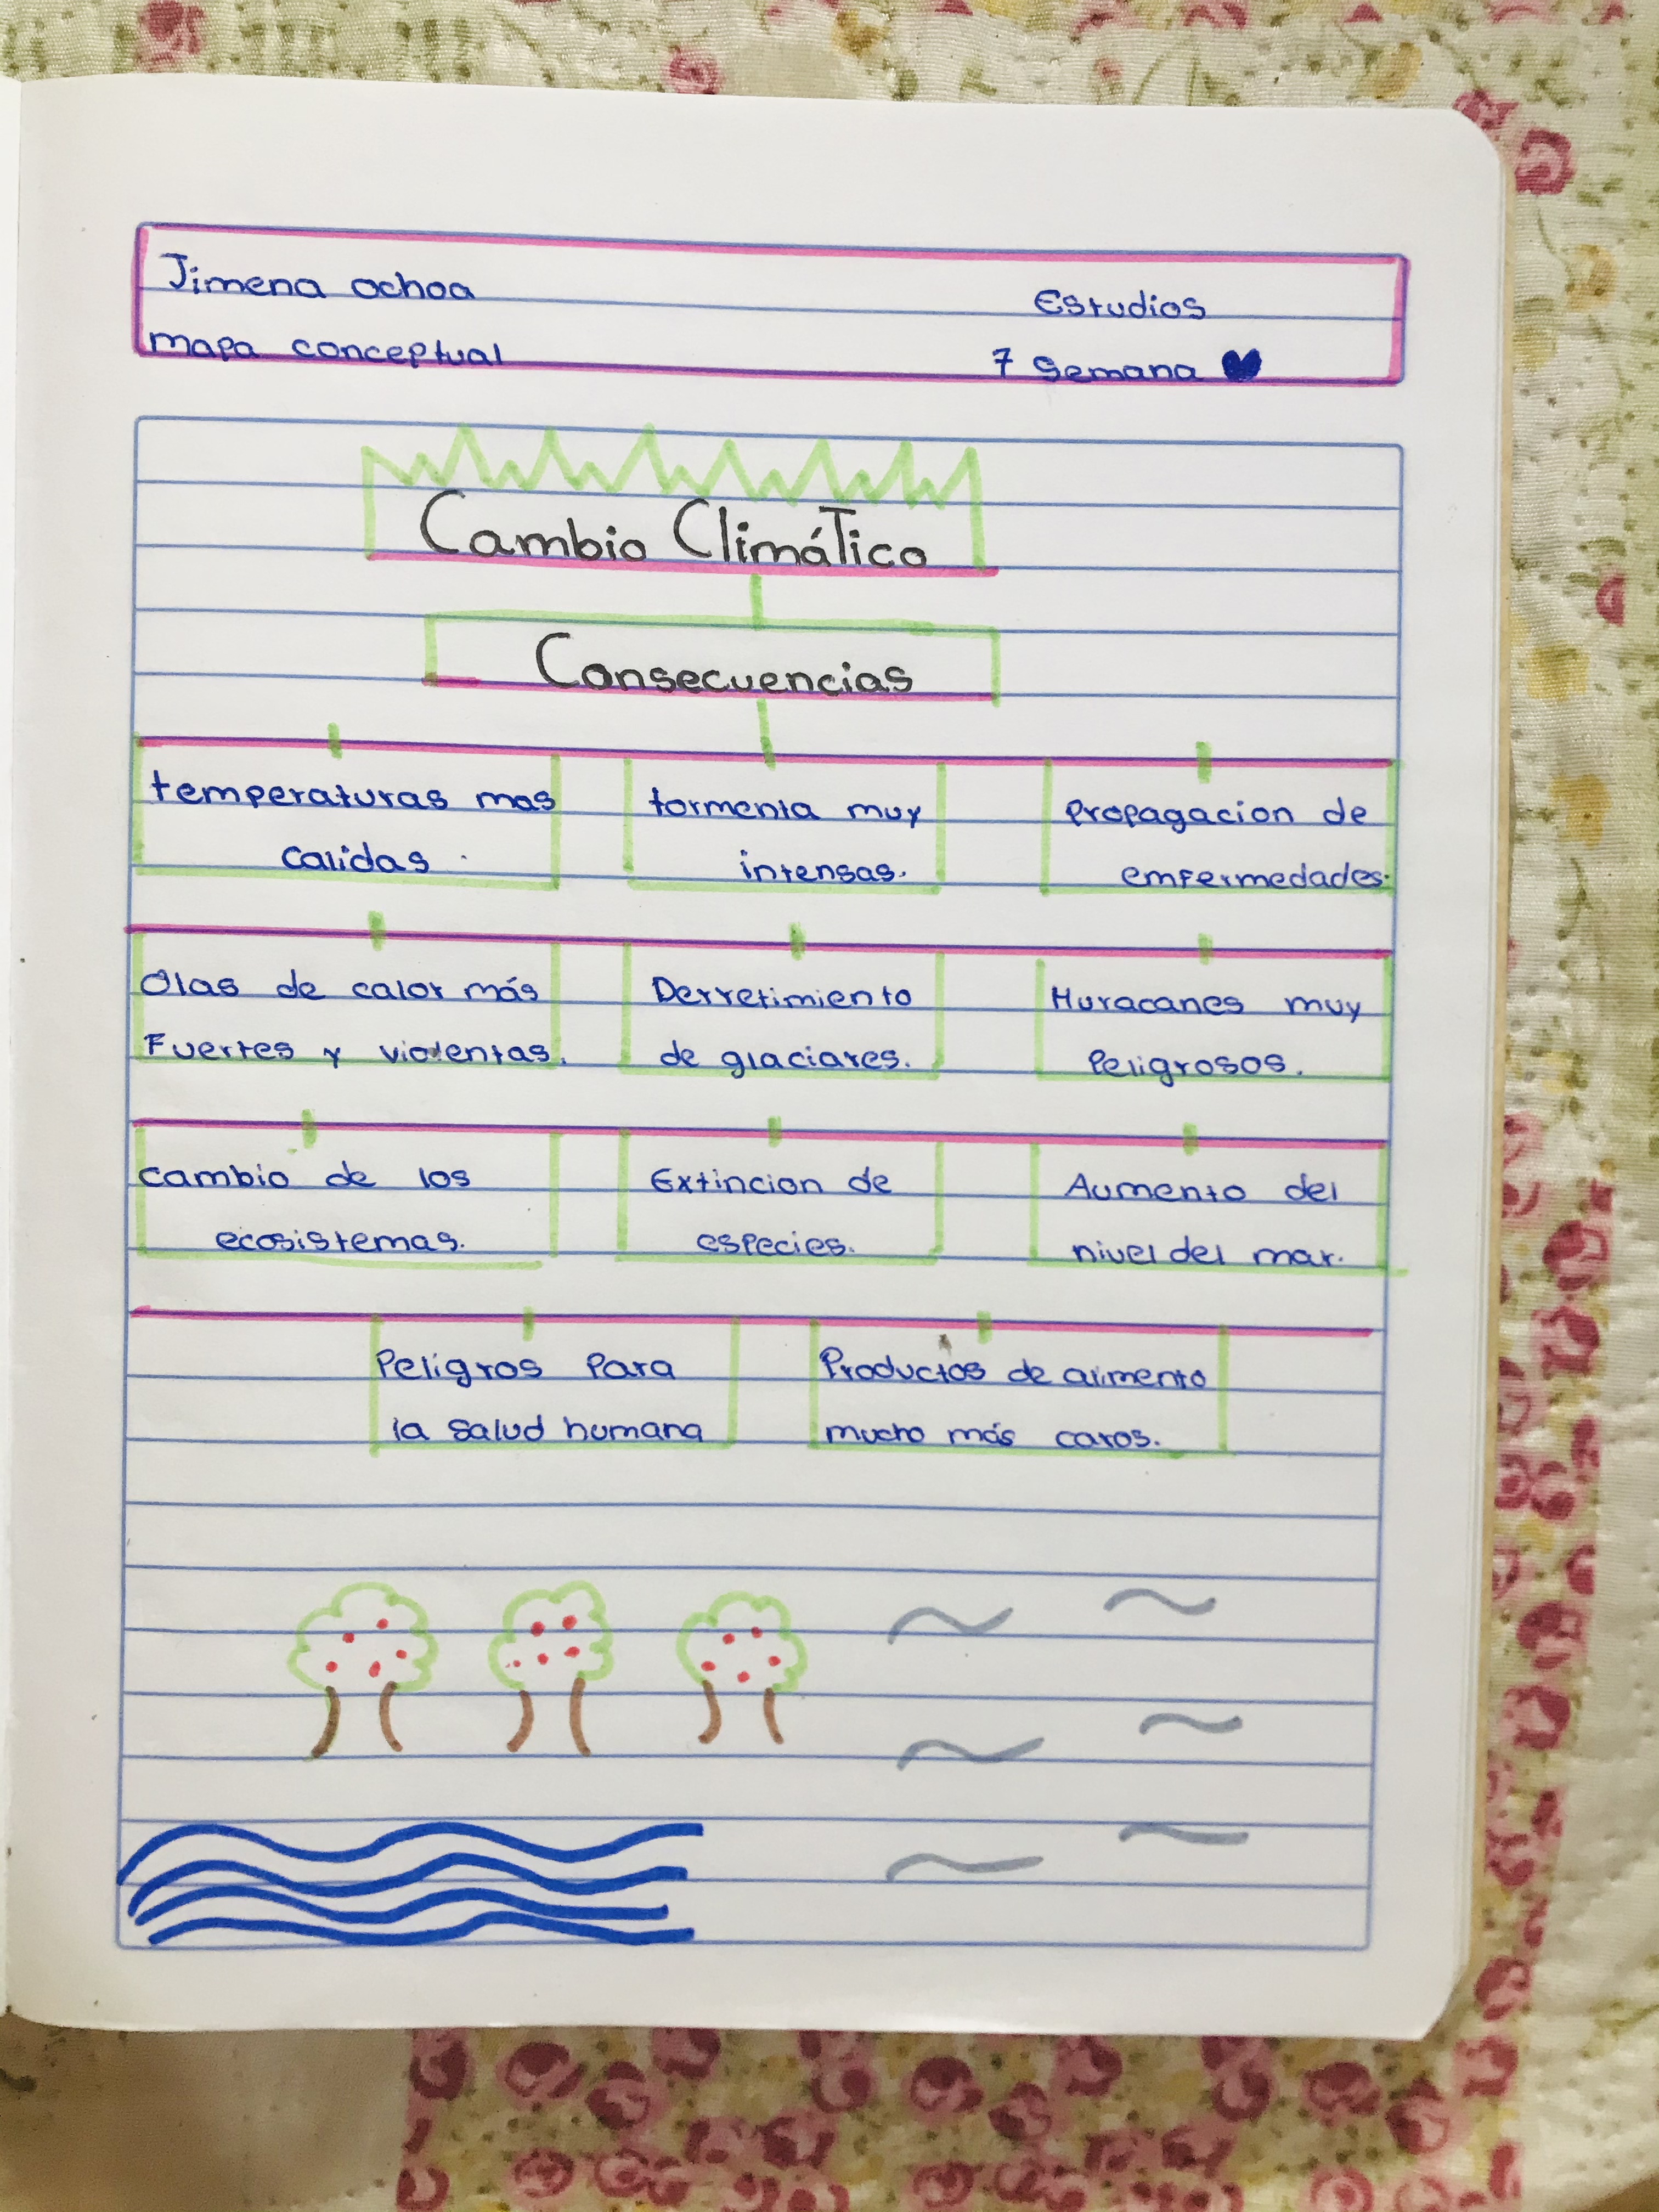 Jimena ochoa
Estudios
mapa conceptual
7 Semana
Cambio Climático
Consecuencias
temperaturas mas
calidas.
tormenta muy
intensas.
propagacion de
enfermedades.
Olas de calor más
Fuertes y violentas.
Derretimiento
de glaciares.
Huracanes muy
Peligrosos.
cambio de los
ecosistemas.
Extincion de
especies.
Aumento del
nivel del mar.
Peligros Para
la salud humana
Productos de alimento
mucho más caros.